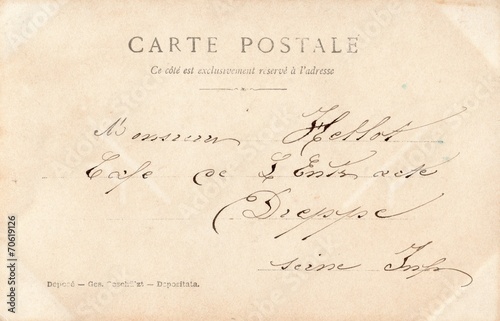 CARTE POSTALE
Ce côté est exclusivement réservé à l'adresse
Monsieur Hellot
Cafe de L'Entr acte
Dieppe
seine Infr
Déposé — Ges. Geschützt — Depositala.
Adobe Stock | #70619126